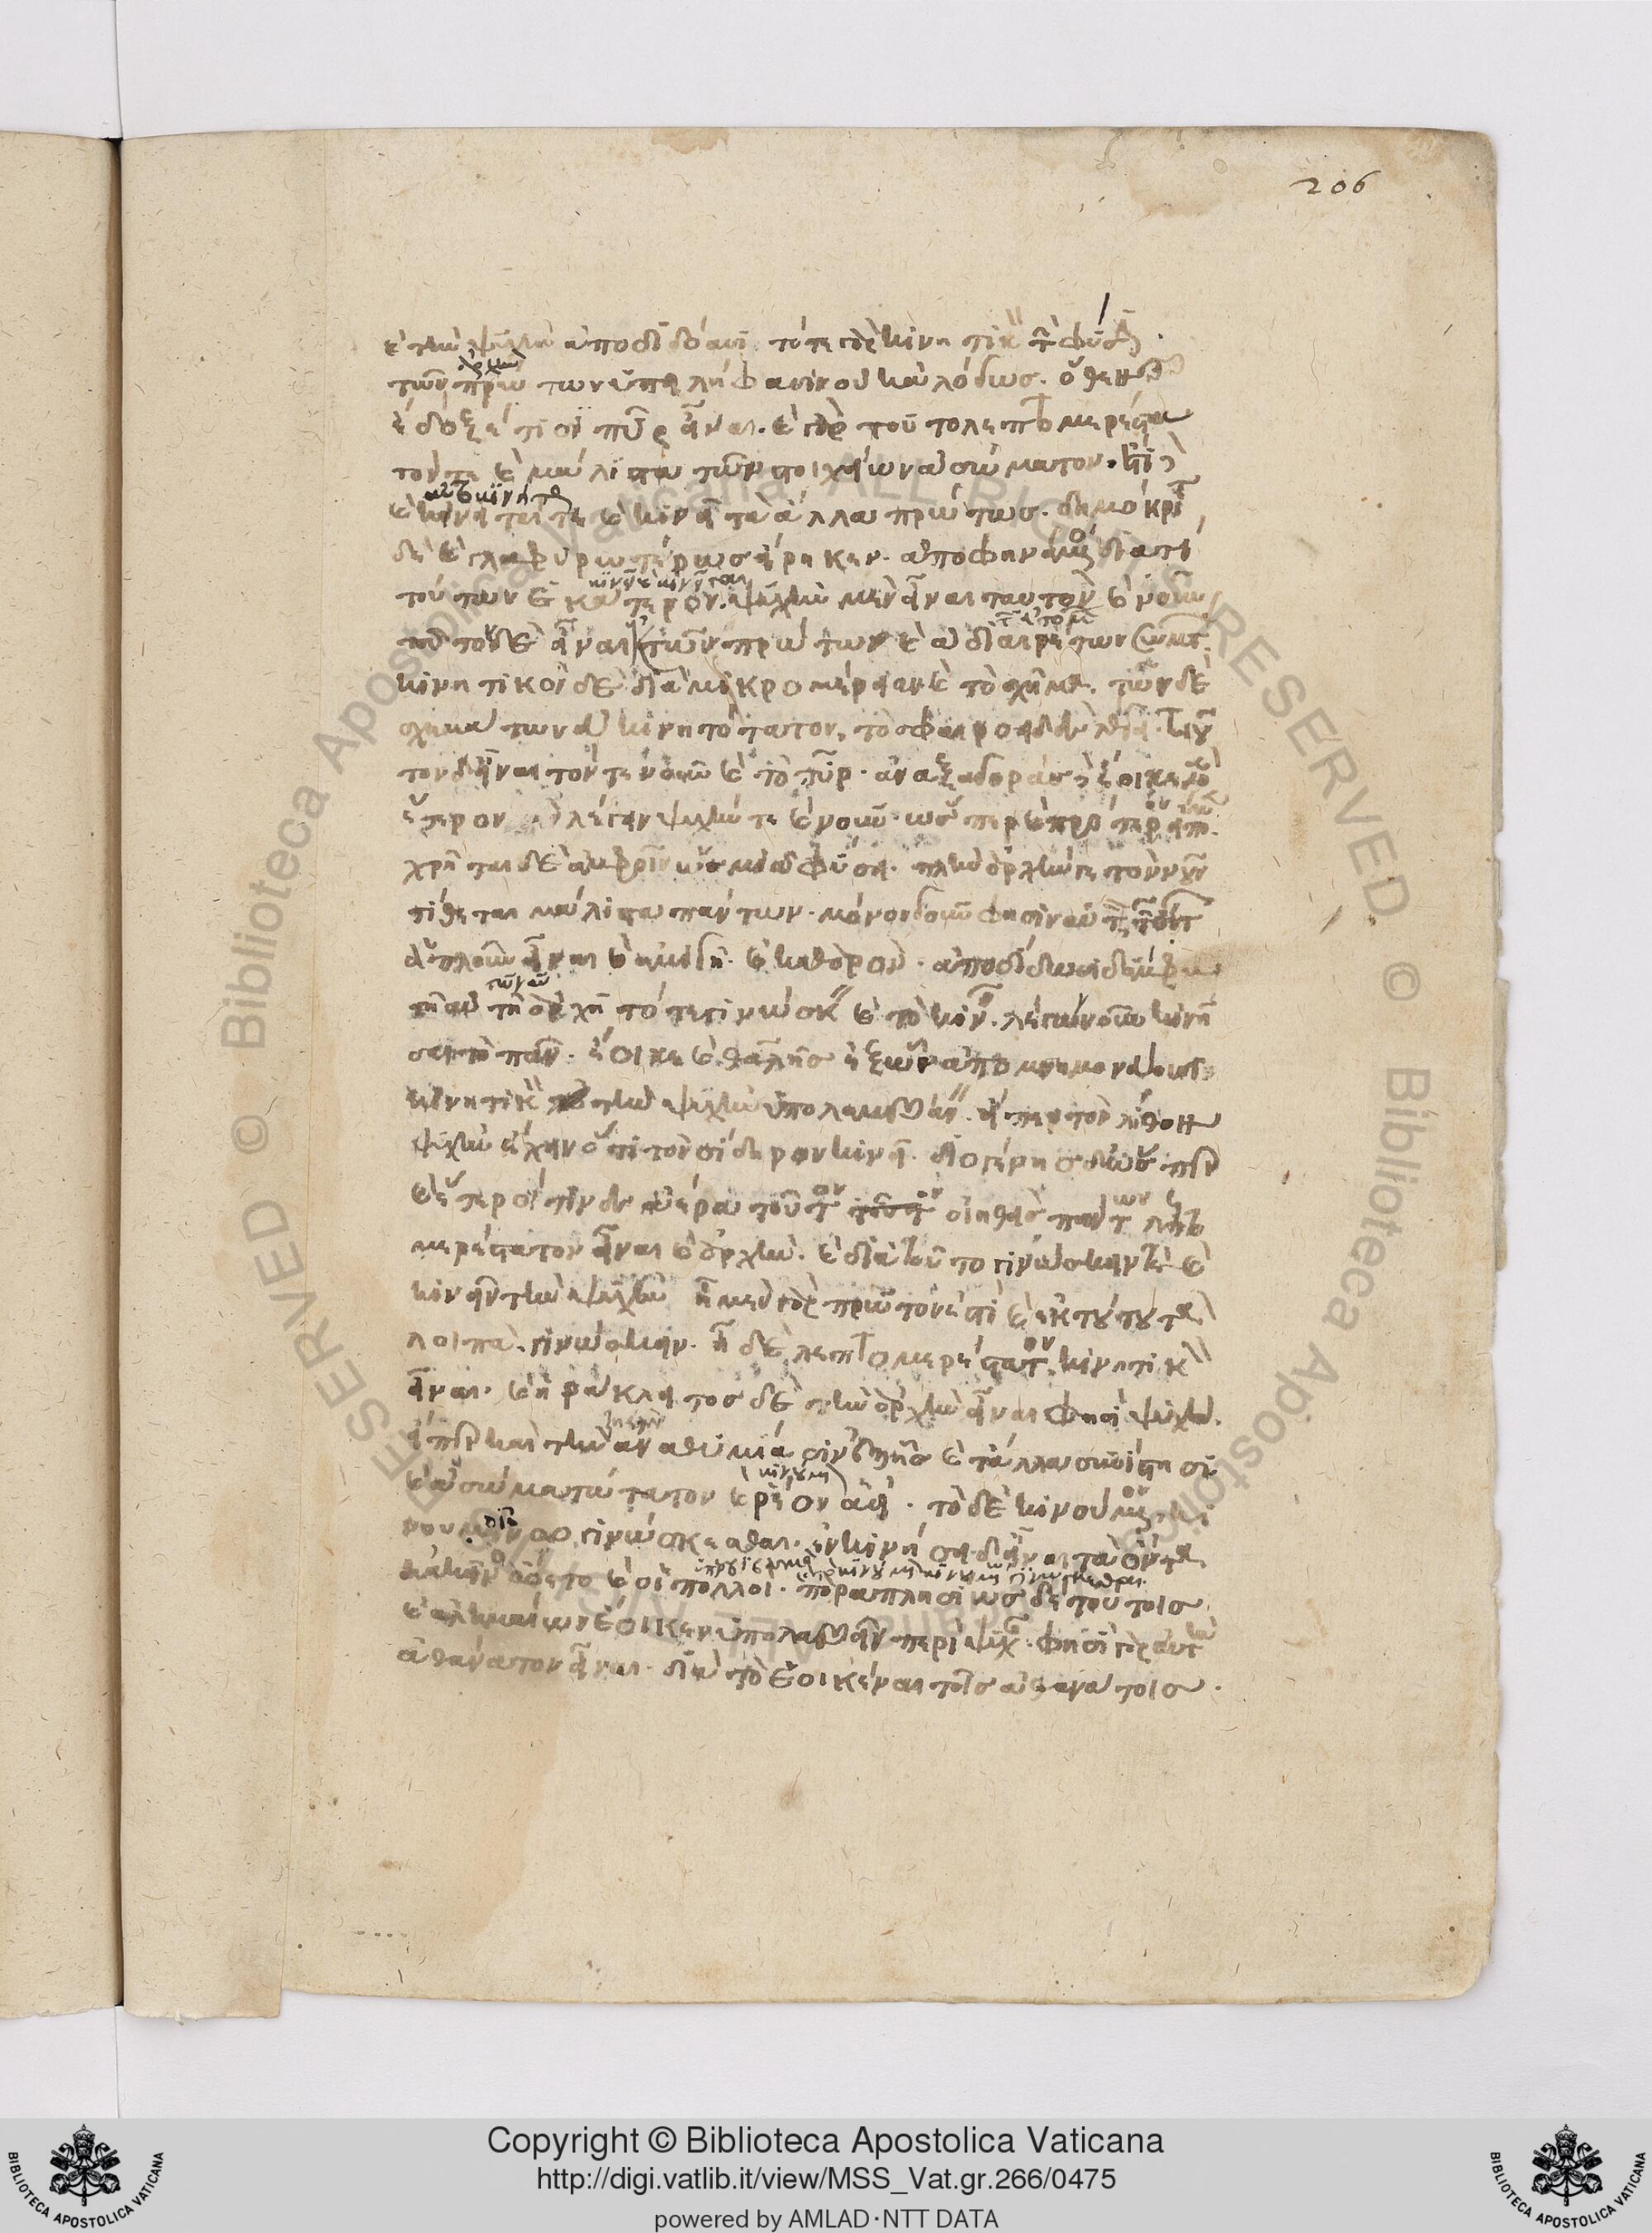 206
καὶ τὴν ψυχὴν ἀποδιδόασι· τό τε γὰρ κινητικὸν τὴν φύσιν
τῶν πρώτων ὑπειλήφασιν οὐκ ἀλόγως. ὅθεν
ἔδοξέ τισι πῦρ εἶναι. καὶ γὰρ τοῦτο λεπτομερέστα
τόν τε καὶ μάλιστα τῶν στοιχείων ἀσώματον. ἔτι δὲ
αὐτοκίνητον
καὶ κινεῖταί τε καὶ κινεῖ τὰ ἄλλα πρώτως. δημόκριτος
δὲ καὶ γλαφυρωτέρως εἴρηκεν. ἀποφηνάμενος διὰ τί
κινεῖ καὶ κινεῖται
τούτων ἑκάτερον. ψυχὴν μὲν εἶναι ταυτὸν καὶ νοῦν
τοῦτο δὲ εἶναι τῶν πρώτων καὶ ἀδιαιρέτων σωμάτων
κινητικὸν δὲ διὰ μικρομέρειαν καὶ τὸ σχῆμα. τῶν δὲ
σχημάτων εὐκινητότατον, τὸ σφαιροειδὲς λέγει. τοιοῦ
τον δ εἶναι τόν τε νοῦν καὶ τὸ πῦρ. ἀναξαγόρας δ ἔοικε μὲν
ἕτερον λέγειν ψυχήν τε καὶ νοῦν. ὥσπερ καὶ πρότερον εἴπομεν
χρῆται δὲ ἀμφοῖν ὡς μιᾷ φύσει. πλὴν ἀρχήν γε τὸν νοῦν
τίθεται μάλιστα πάντων. μόνον γοῦν φησὶν αὐτὸν τῶν ὄντων
ἁπλοῦν εἶναι καὶ ἀμιγῆ καὶ καθαρόν. ἀποδίδωσι δ ἄμφω
τῇ αὐτῇ ἀρχῇ τό τε γινώσκειν καὶ τὸ κινεῖν. λέγων νοῦν κινῆ
σαι τὸ πᾶν. ἔοικε καὶ θαλῆς ἐξ ὧν ἀπομνημονεύουσι
κινητικόν τι τὴν ψυχὴν ὑπολαμβάνειν. εἴπερ τὸν λίθον
ψυχὴν ἔχειν ὅτι τὸν σίδηρον κινεῖ. διογένης δ ὥσπερ
καὶ ἕτεροί τινες ἀέρα τοῦτον οἰηθεὶς πάντων λεπτο
μερέστατον εἶναι καὶ ἀρχήν. καὶ διὰ τοῦτο γινώσκειν τε καὶ
κινεῖν τὴν ψυχήν ᾗ μὲν γὰρ πρῶτόν ἐστι καὶ ἐκ τούτου τὰ
λοιπὰ. γινώσκειν. ᾗ δὲ λεπτομερέστατον, κινητικὸν
εἶναι. καὶ ἡράκλειτος δὲ τὴν ἀρχὴν εἶναι φησὶ ψυχήν.
εἴπερ καὶ τὴν ἀναθυμίασιν ἐξ ἧς καὶ τἆλλα συνίστησι
καὶ ἀσωματώτατον καὶ ῥέον ἀεί. τὸ δὲ κινούμενον κι
νουμένῳ γινώσκεσθαι. ἐν κινήσει δ εἶναι τὰ ὄντα
κἀκεῖνος ᾤετο καὶ οἱ πολλοί. παραπλησίως δὲ τούτοις
καὶ ἀλκμαίων ἔοικεν ὑπολαβεῖν περὶ ψυχῆς. φησὶ γὰρ αὐτὴν
ἀθάνατον εἶναι. διὰ τὸ ἐοικέναι τοῖς ἀθανάτοις.
Copyright © Biblioteca Apostolica Vaticana
http://digi.vatlib.it/view/MSS_Vat.gr.266/0475
powered by AMLAD·NTT DATA